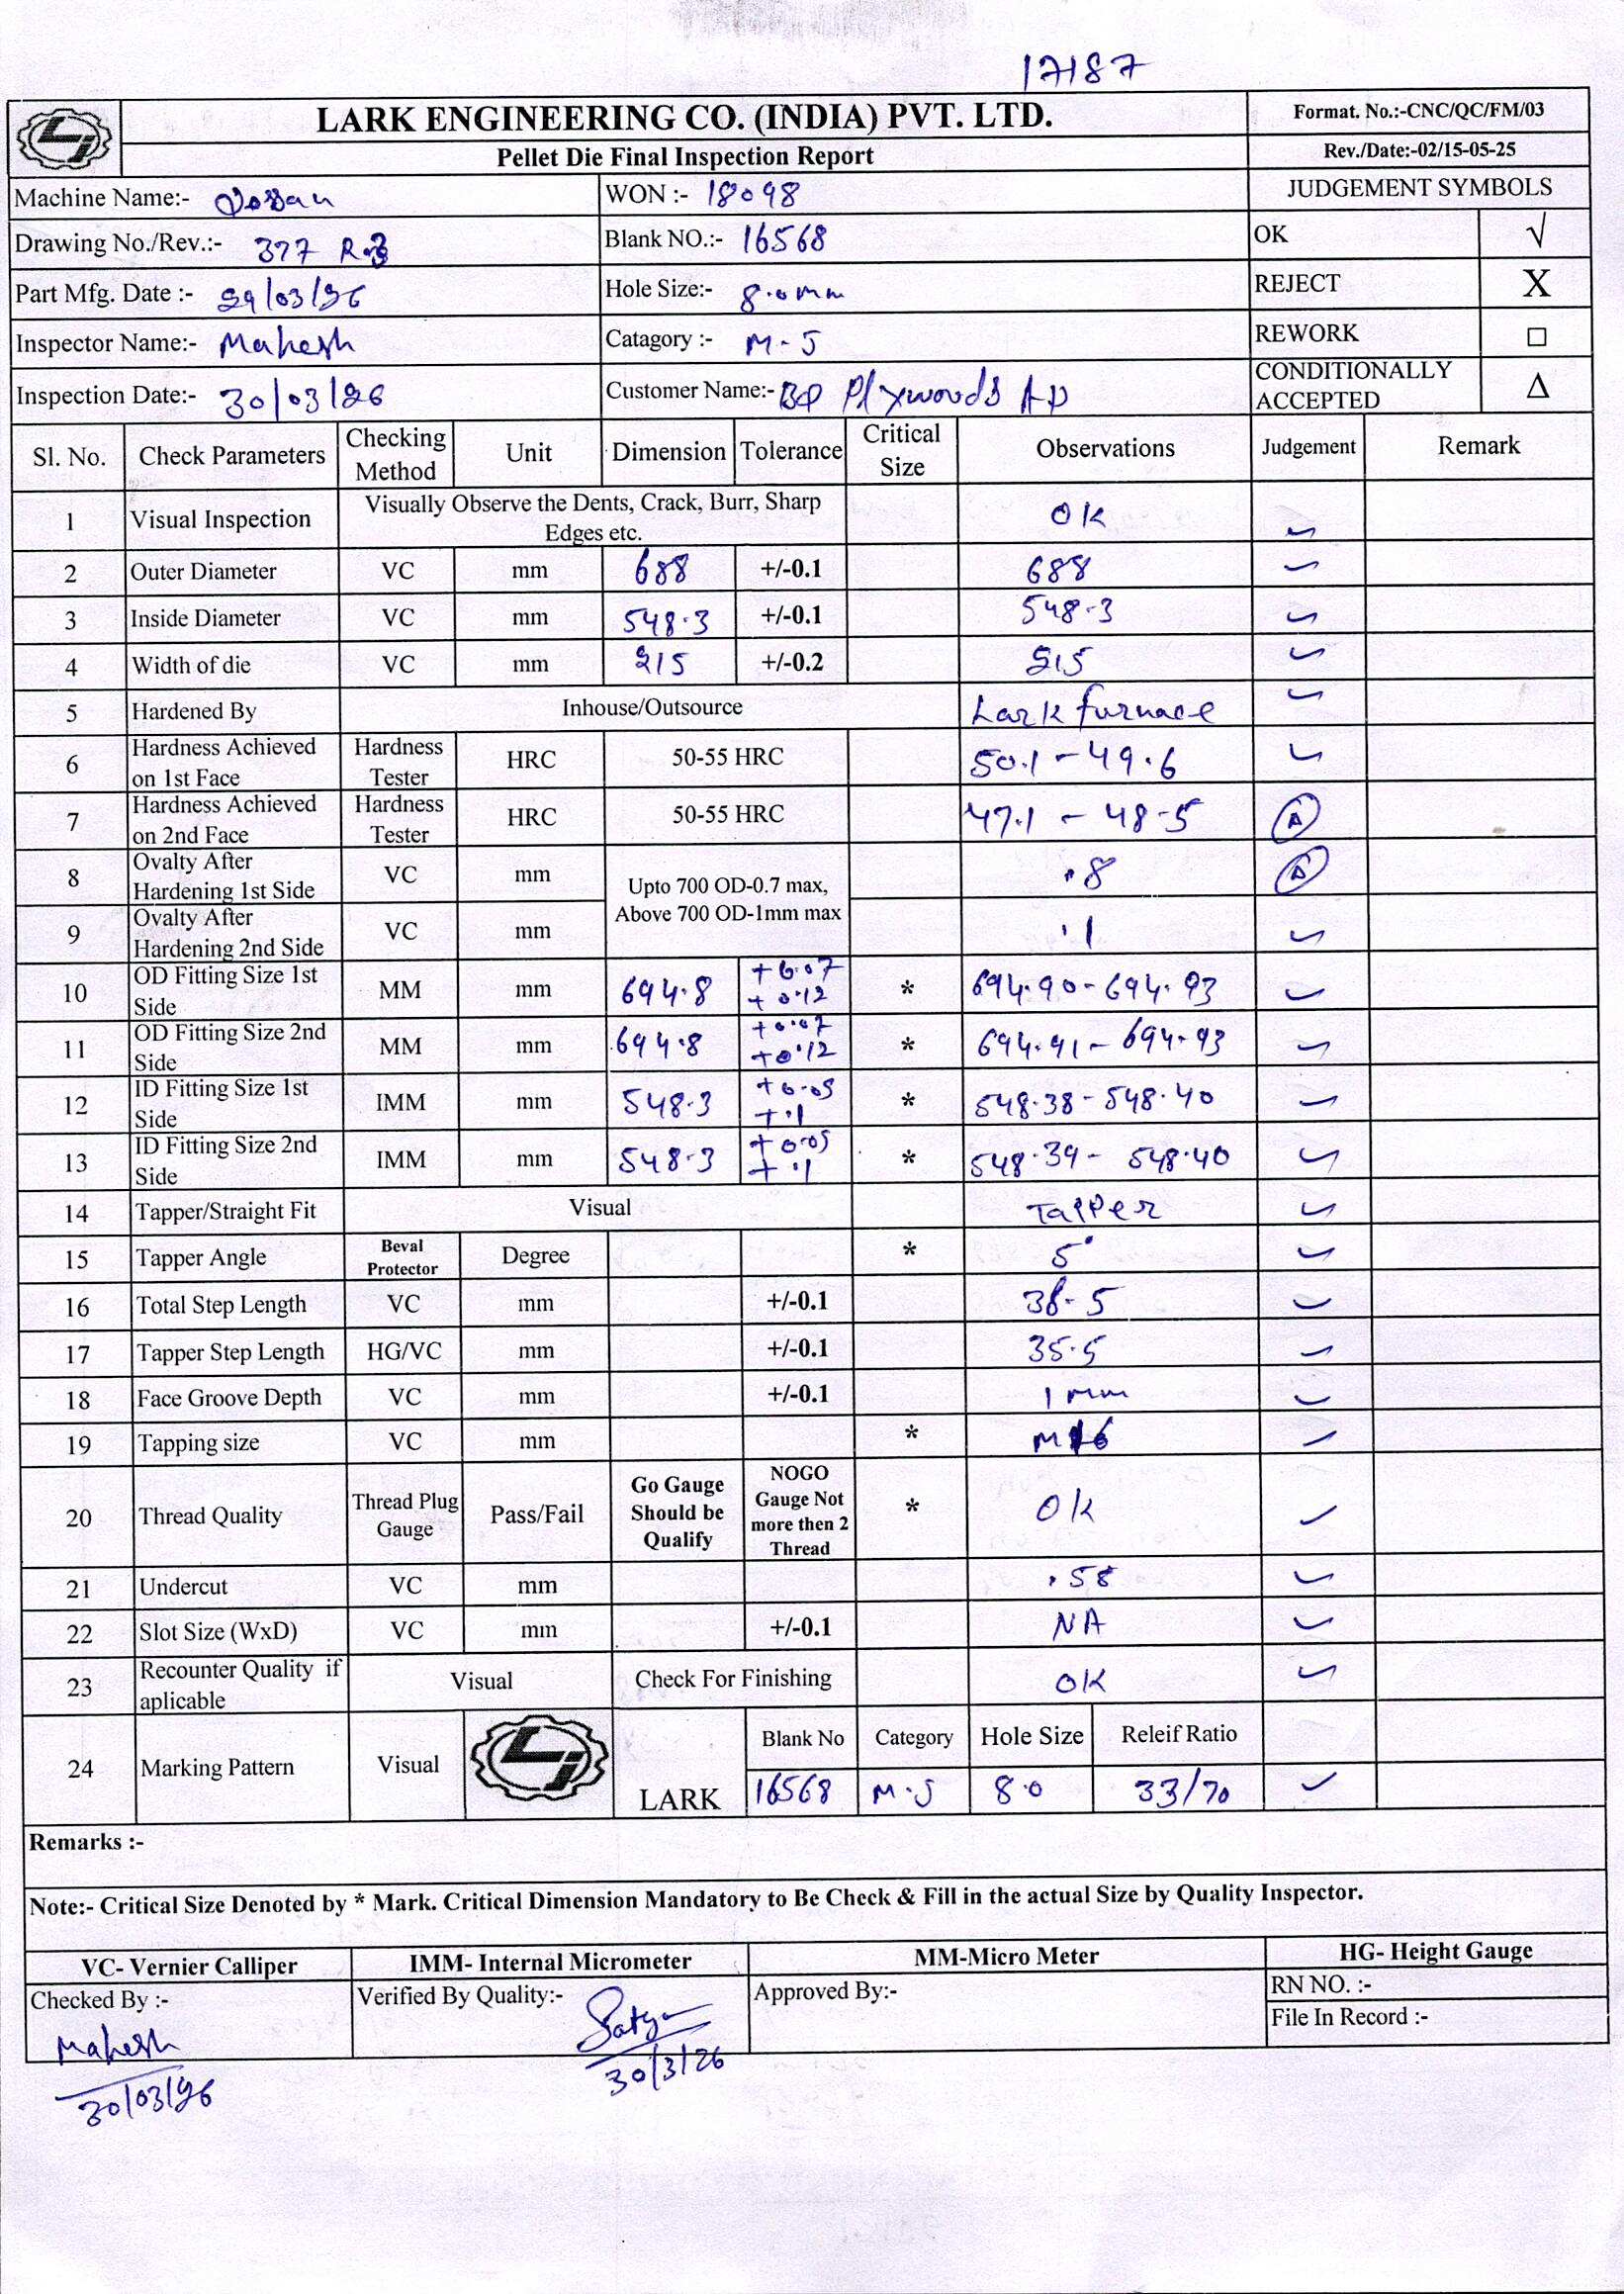 17187
LARK ENGINEERING CO. (INDIA) PVT. LTD.
Format. No.:-CNC/QC/FM/03
Pellet Die Final Inspection Report
Rev./Date:-02/15-05-25
Machine Name:-
WON :- 18098
JUDGEMENT SYMBOLS
Drawing No./Rev.:- 377 R.3
Blank NO.:- 16568
OK √
Part Mfg. Date :- 29/03/26
Hole Size:- 8.0mm
REJECT X
Inspector Name:- Mahesh
Catagory :- M-5
REWORK □
Inspection Date:- 30/03/26
Customer Name:- BP Plywoods AP
CONDITIONALLY ACCEPTED Δ
Sl. No. Check Parameters Checking Method Unit Dimension Tolerance Critical Size Observations Judgement Remark
1 Visual Inspection Visually Observe the Dents, Crack, Burr, Sharp Edges etc. OK ✓
2 Outer Diameter VC mm 688 +/-0.1 688 ✓
3 Inside Diameter VC mm 548.3 +/-0.1 548.3 ✓
4 Width of die VC mm 215 +/-0.2 215 ✓
5 Hardened By Inhouse/Outsource Lark furnace ✓
6 Hardness Achieved on 1st Face Hardness Tester HRC 50-55 HRC 50.1 - 49.6 ✓
7 Hardness Achieved on 2nd Face Hardness Tester HRC 50-55 HRC 47.1 - 48.5
8 Ovalty After Hardening 1st Side VC mm Upto 700 OD-0.7 max, Above 700 OD-1mm max .8
9 Ovalty After Hardening 2nd Side VC mm .1 ✓
10 OD Fitting Size 1st Side MM mm 694.8 +0.07 +0.12 * 694.90-694.93 ✓
11 OD Fitting Size 2nd Side MM mm 694.8 +0.07 +0.12 * 694.91-694.93 ✓
12 ID Fitting Size 1st Side IMM mm 548.3 +0.05 +.1 * 548.38-548.40 ✓
13 ID Fitting Size 2nd Side IMM mm 548.3 +0.05 +.1 * 548.39- 548.40 ✓
14 Tapper/Straight Fit Visual Tapper ✓
15 Tapper Angle Beval Protector Degree * 5° ✓
16 Total Step Length VC mm +/-0.1 38.5 ✓
17 Tapper Step Length HG/VC mm +/-0.1 35.5 ✓
18 Face Groove Depth VC mm +/-0.1 1mm ✓
19 Tapping size VC mm * M16 ✓
20 Thread Quality Thread Plug Gauge Pass/Fail Go Gauge Should be Qualify NOGO Gauge Not more then 2 Thread * OK ✓
21 Undercut VC mm .58 ✓
22 Slot Size (WxD) VC mm +/-0.1 NA ✓
23 Recounter Quality if aplicable Visual Check For Finishing OK ✓
24 Marking Pattern Visual LARK Blank No Category Hole Size Releif Ratio
16568 M-5 8.0 33/70 ✓
Remarks :-
Note:- Critical Size Denoted by * Mark. Critical Dimension Mandatory to Be Check & Fill in the actual Size by Quality Inspector.
VC- Vernier Calliper IMM- Internal Micrometer MM-Micro Meter HG- Height Gauge
Checked By :- Verified By Quality:- Approved By:- RN NO. :-
File In Record :-
Mahesh Satya
30/03/26 30/3/26